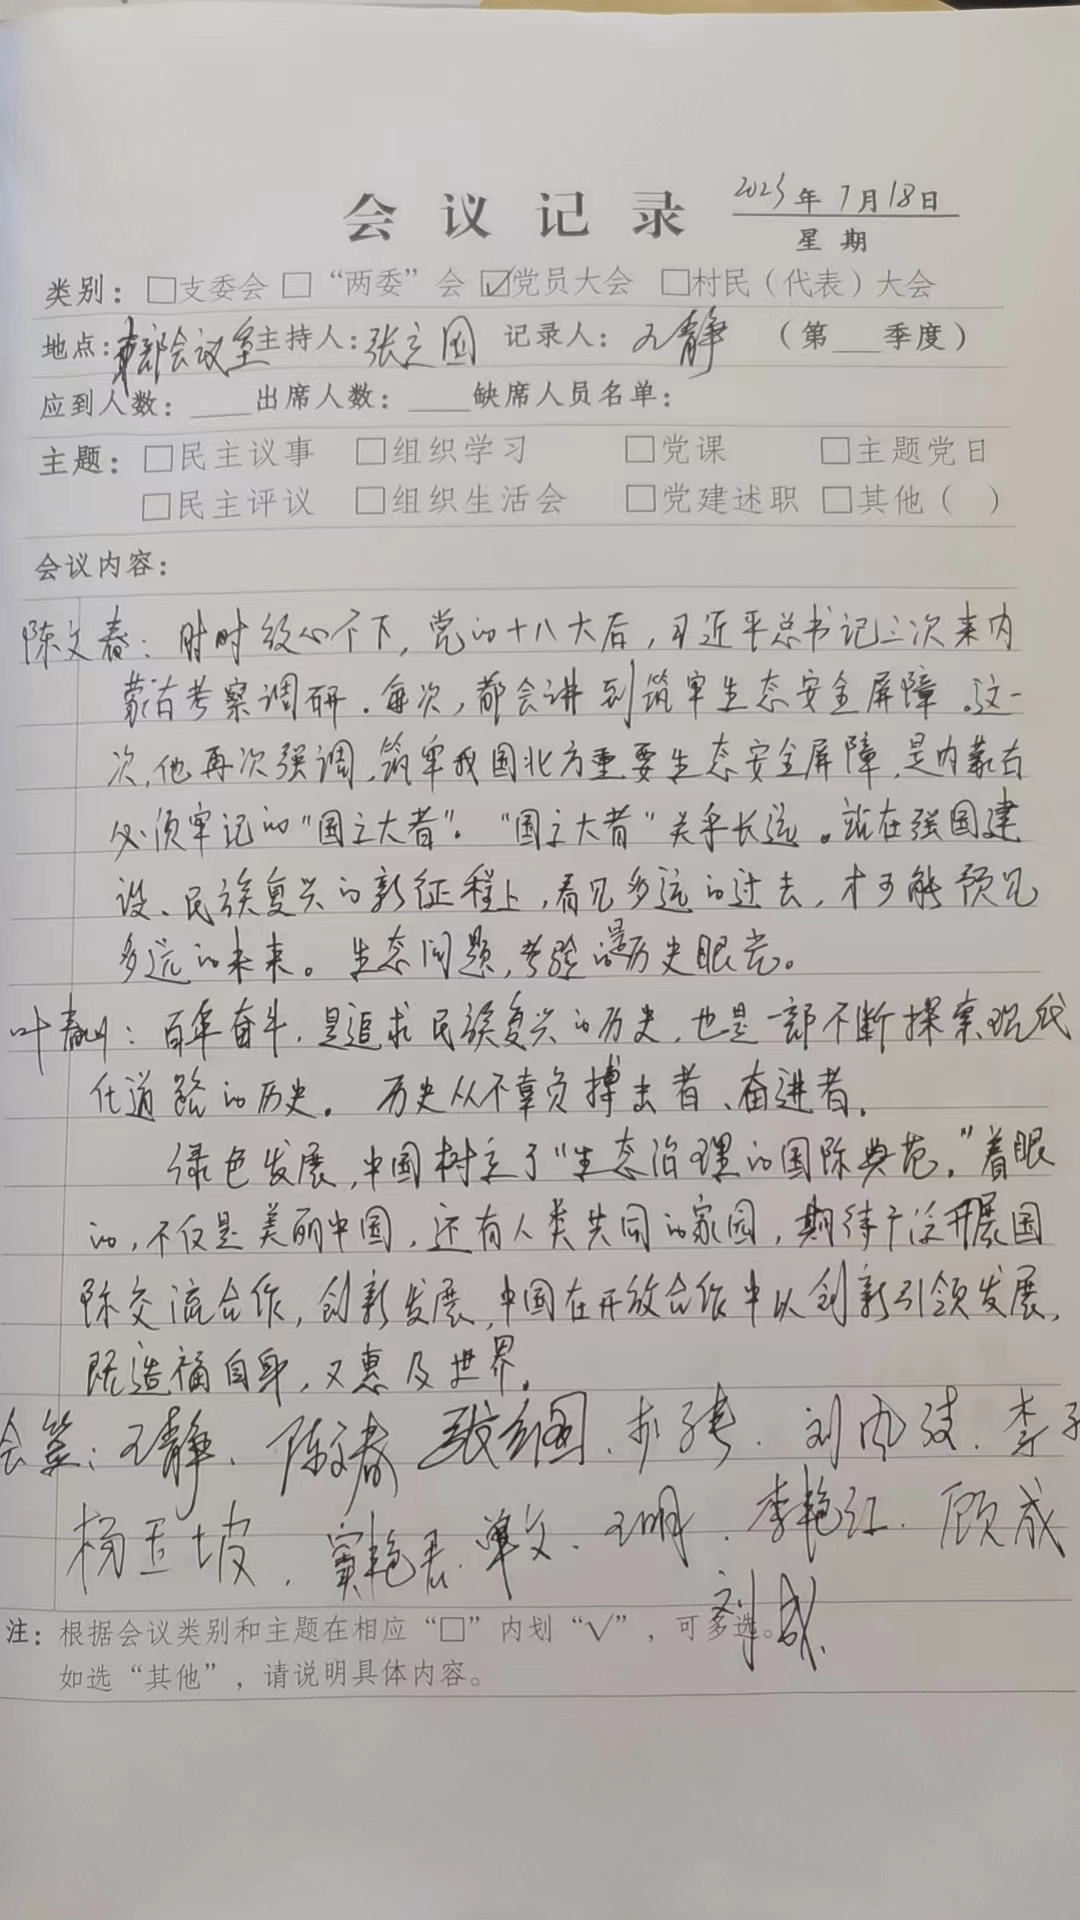 会议记录 2023年7月18日
星期
类别：□支委会 □“两委”会 ☑党员大会 □村民（代表）大会
地点：部会议室 主持人：张立国 记录人：王静 （第___季度）
应到人数：____出席人数：____缺席人员名单：
主题：□民主议事 □组织学习 □党课 □主题党日
□民主评议 □组织生活会 □党建述职 □其他（ ）
会议内容：
陈文春：时时放心不下，党的十八大后，习近平总书记三次来内
蒙古考察调研。每次，都会讲到筑牢生态安全屏障。这一
次，他再次强调，筑牢我国北方重要生态安全屏障，是内蒙古
必须牢记的“国之大者”。“国之大者”关乎长远。站在强国建
设、民族复兴的新征程上，看见多远的过去，才可能预见
多远的未来。生态问题，考验的是历史眼光。
叶：百年奋斗，是追求民族复兴的历史，也是一部不断探索现代
化道路的历史。历史从不辜负搏击者、奋进者。
绿色发展，中国树立了“生态治理的国际典范。”着眼
的，不仅是美丽中国，还有人类共同的家园，期待广泛开展国
际交流合作，创新发展，中国在开放合作中以创新引领发展，
既造福自身，又惠及世界。
会签：王静、陈文春 张立国、刘、李
杨玉坡、窦艳君、单文、王明、李艳红、顾成
刘成、
注：根据会议类别和主题在相应“□”内划“√”，可多选。
如选“其他”，请说明具体内容。